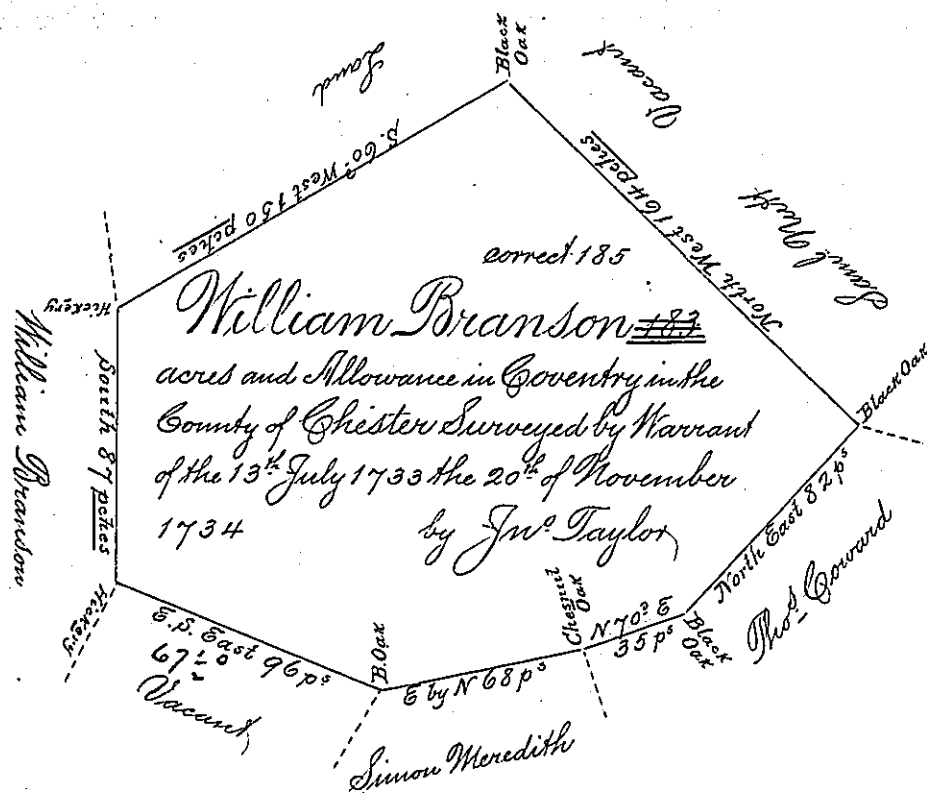 Black Oak
Vacant
Land
S. 60° West 150 pches
North West 164 pches
Saml Nutt
correct 185
Hickery
William Branson 183
acres and Allowance in Coventry in the
County of Chester Surveyed by Warrant
of the 13th July 1733 the 20th of November
1734 by Jno Taylor
Black Oak
William Branson
South 87 pches
North East 82 ps
Thos Coward
Hickery
E.S. East 96 ps
67½°
Vacant
B. Oak
E by N 68 ps
Chesnut Oak
N 70° E
35 ps
Black Oak
Simon Meredith